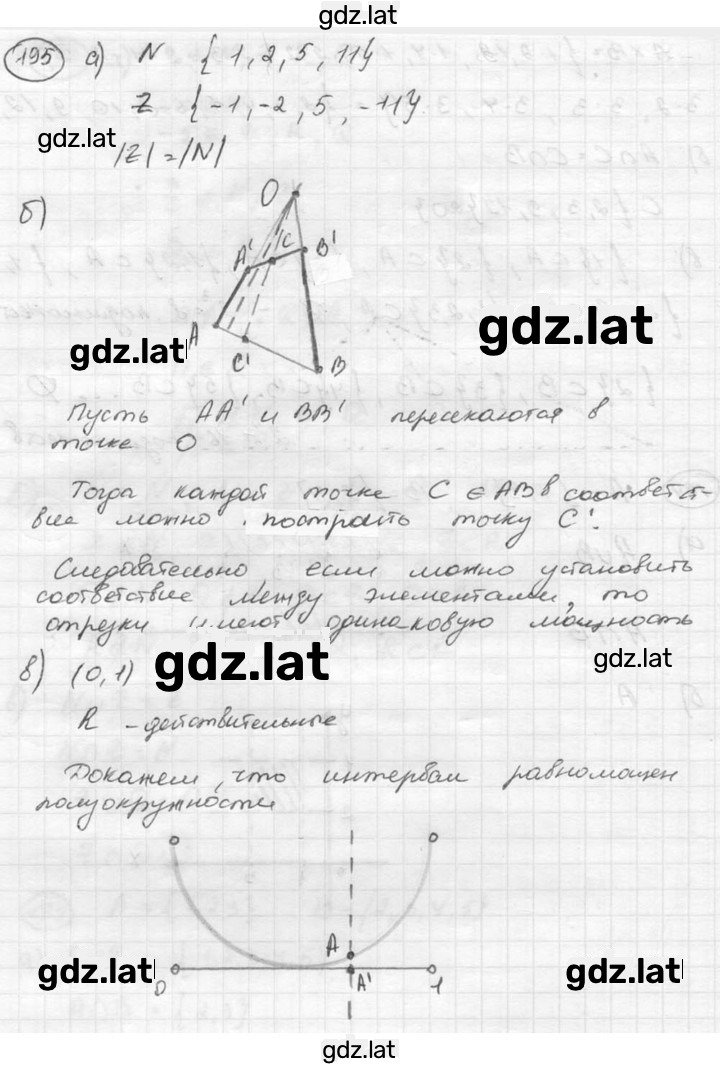 gdz.lat
195 а) N {1, 2, 5, 11}
Z {-1, -2, 5, -11}
gdz.lat
|Z| = |N|
б)
O
A' C B'
gdz.lat
A
gdz.lat
C' B
Пусть AA' и BB' пересекаются в
точке O
Тогда каждой точке C ∈ AB в соответст-
вие можно построить точку C'.
Следовательно если можно установить
соответствие между элементами, то
отрезки имеют одинаковую мощность
в) (0,1)
gdz.lat
gdz.lat
R - действительные
Докажем, что интервал равномощен
полуокружности
A
gdz.lat
gdz.lat
0 A' 1
gdz.lat